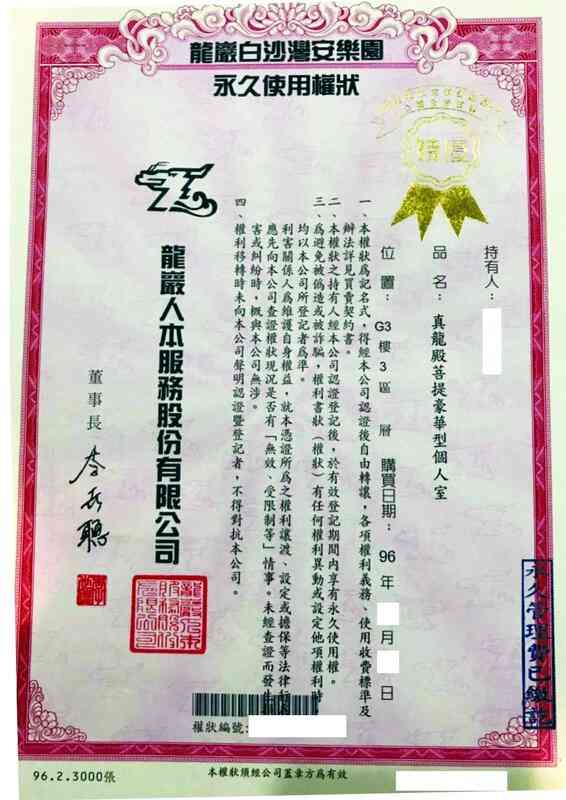 龍巖白沙灣安樂園
永久使用權狀
特區
持有人：
品名：真龍殿菩提豪華型個人室
位置：G3樓3區 層 購買日期：96年 月 日
一、本權狀為記名式，得經本公司認證後自由轉讓，各項權利義務、使用收費標準及
辦法詳見買賣契約書。
二、本權狀之持有人經本公司認證登記後，於有效登記期間內享有永久使用權。
三、為避免被偽造或被詐騙，權利書狀（權狀）有任何權利異動或設定他項權利時
均以本公司所登記者為準。
利害關係人為維護自身權益，就本憑證所為之權利讓渡、設定或擔保等法律行
應先向本公司查證權狀現況是否有「無效、受限制等」情事。未經查證而發生
害或糾紛時，概與本公司無涉。
四、權利移轉時未向本公司聲明認證暨登記者，不得對抗本公司。
龍巖人本服務股份有限公司
董事長 李世聰
永久管理費已繳訖
權狀編號：
96.2.3000張
本權狀須經公司蓋章方為有效